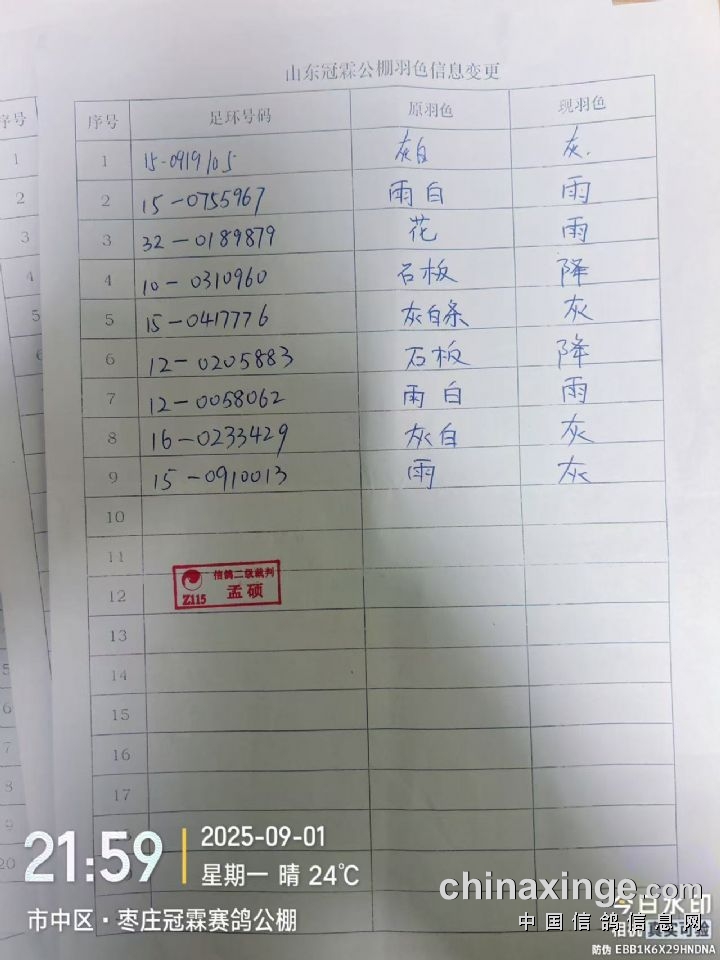 山东冠霖公棚羽色信息变更
序号 足环号码 原羽色 现羽色
1 15-0919105 灰白 灰.
2 15-0755967 雨白 雨
3 32-0189879 花 雨
4 10-0310960 石板 降
5 15-0417776 灰白条 灰
6 12-0205883 石板 降
7 12-0058062 雨白 雨
8 16-0233429 灰白 灰
9 15-0910013 雨 灰
10
11
信鸽二级裁判
12
Z115 孟硕
13
14
15
16
17
序号
1
2
3
4
5
6
5
6
7
8
9
20
21:59
2025-09-01
星期一 晴 24℃
市中区·枣庄冠霖赛鸽公棚
chinaxinge.com
中国信鸽信息网
今日水印
相机 真实可验
防伪 EBB1K6X29HNDNA